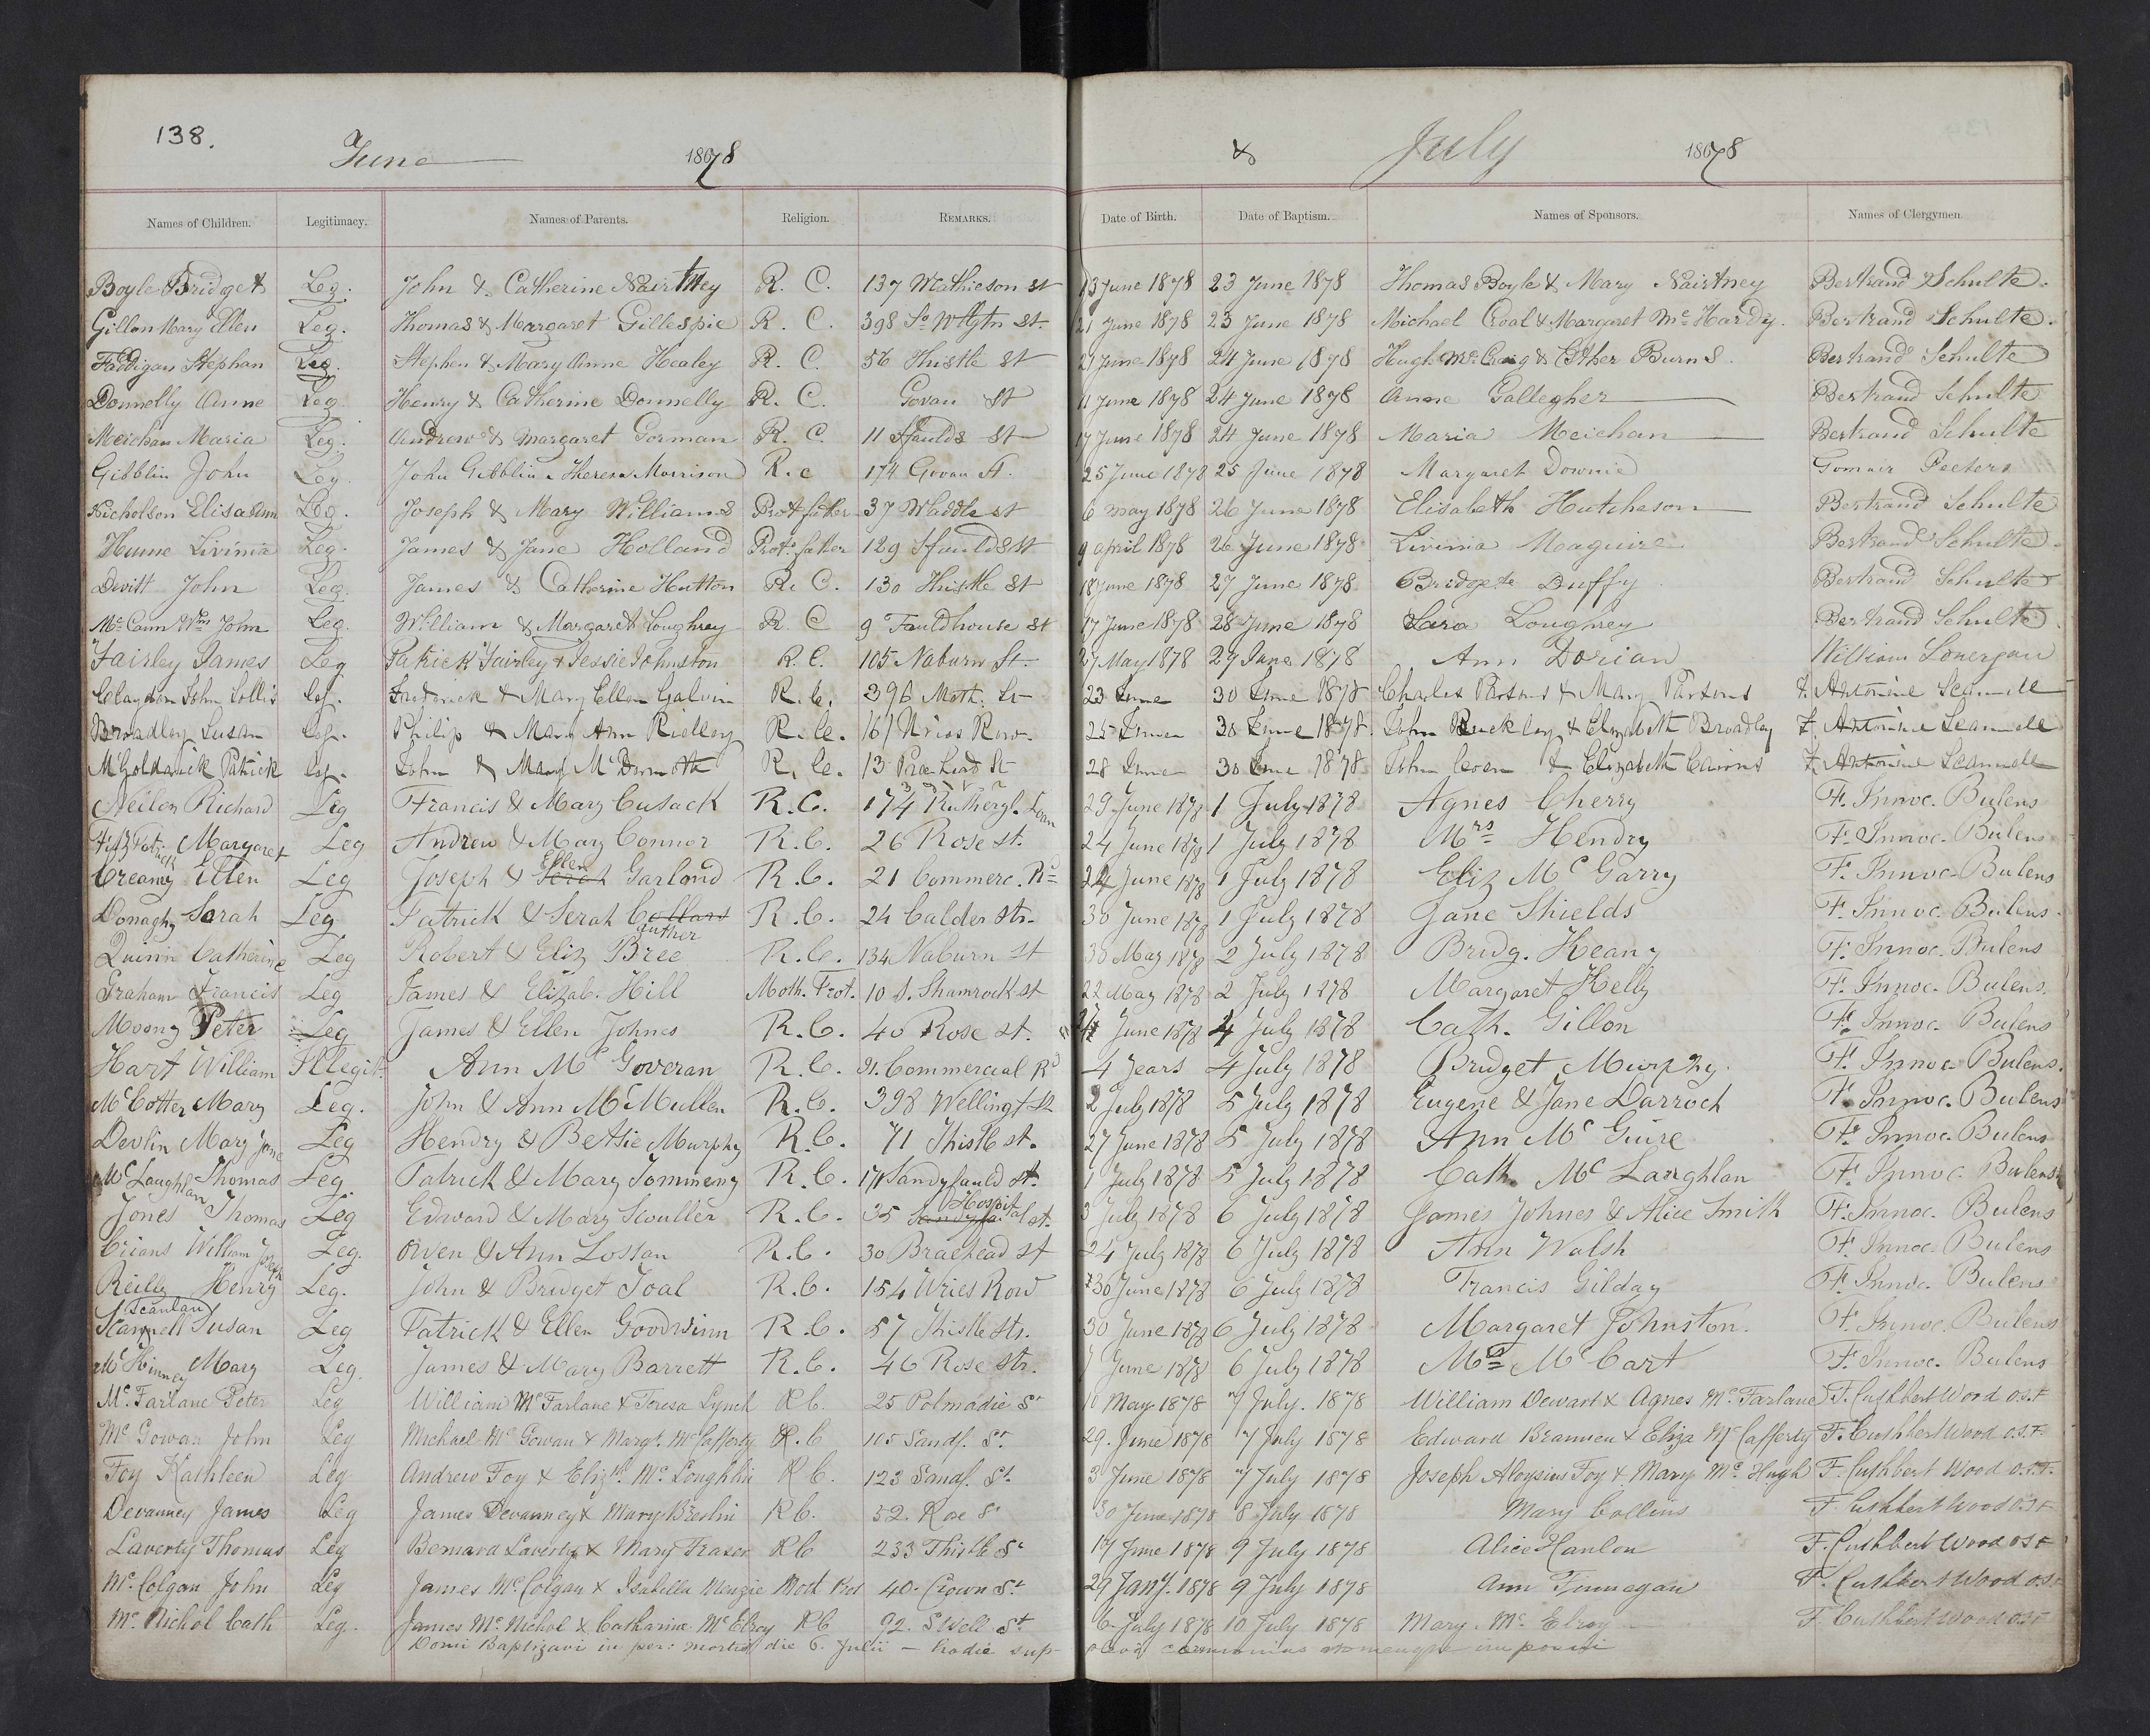 138.
June 1878 & July 1878
Names of Children. Legitimacy. Names of Parents. Religion. REMARKS. Date of Birth. Date of Baptism. Names of Sponsors. Names of Clergymen
Boyle Bridget Leg. John & Catherine Nairtney R. C. 137 Mathieson st 13 June 1878 23 June 1878 Thomas Boyle & Mary Nairtney Bertrand Schulte.
Gillon Mary Ellen Leg. Thomas & Margaret Gillespie R. C. 398 So Wlgtn st. 21 June 1878 23 June 1878 Michael Croal & Margaret Mc Hardy. Bertrand Schulte.
Faddigan Stephan Leg. Stephen & Mary Anne Healey R. C. 56 Thistle st 21 June 1878 24 June 1878 Hugh Mc Craig & Esther Burns. Bertrand Schulte
Donnelly Anne Leg. Henry & Catherine Donnelly R. C. Govan St 11 June 1878 24 June 1878 Anne Gallegher Bertrand Schulte
Meichan Maria Leg. Andrew & Margaret Gorman R. C. 11 Sfaulds st 17 June 1878 24 June 1878 Maria Meichan Bertrand Schulte
Gibblin John Leg. John Gibblin & Theresa Morrison R. C 174 Govan St. 25 June 1878 25 June 1878 Margaret Downie Gomair Peeters
Nicholson Elisa Ann Leg. Joseph & Mary Williams Prot father 37 Waddle st 6 May 1878 26 June 1878 Elisabeth Hutcheson Bertrand Schulte
Hume Livinia Leg. James & Jane Holland Prot. father 129 Sfaulds st 9 April 1878 26 June 1878 Livinia Maguire Bertrand Schulte.
Devitt John Leg. James & Catherine Hutton R. C. 130 Thistle st 18 June 1878 27 June 1878 Bridget Duffy Bertrand Schulte
Mc Cann Wm John Leg. William & Margaret Loughrey R. C 9 Fauldhouse st 17 June 1878 28 June 1878 Sara Loughrey Bertrand Schulte.
Fairley James Leg Patrick Fairley & Jessie Johnston R. C. 105 Naburn St. 27 May 1878 29 June 1878 Ann Dorian William Lonergan
Claydon John Collis Leg. Frederick & Mary Ellen Galvin R. C. 396 Math. St 23 June 30 June 1878 Charles Parsons & Mary Parsons F. Antonine Scannell
Broadley Susan Leg. Philip & Mary Ann Rielley R. C. 161 Uries Row. 25 June 30 June 1878. John Buckley & Elizabeth Broadley F. Antonine Scannell
McGoldarick Patrick Leg. John & Mary McDermoth R. C. 13 Braehead St 28 June 30 June 1878 John Coen & Elizabeth Cairns F. Antonine Scannell
Neilon Richard Leg Francis & Mary Cusack R.C. 174 Ruthergl. Loan 29 June 1878 1 July 1878 Agnes Cherry F. Innoc. Bulens
Fitzpatrick Margaret Leg Andrew & Mary Connor R.C. 26 Rose st. 24 June 1878 1 July 1878 Mrs Hendry F. Innoc. Bulens
Creamy Ellen Leg Joseph & Ellen Garland R.C. 21 Commerc. Rd 24 June 1878 1 July 1878 Eliz Mc Garry F. Innoc. Bulens
Donaghy Sarah Leg Patrick & Serah Collars R.C. 24 Calder Str. 30 June 1878 1 July 1878 Jane Shields F. Innoc. Bulens
Quinn Catherine Leg Robert & Eliz Bree R.C. 134 Naburn St 30 May 1878 2 July 1878 Bridg. Heany F. Innoc. Bulens
Graham Francis Leg James & Elizab. Hill Moth. Prot. 10 S. Shamrock st 22 May 1878 2 July 1878 Margaret Kelly F. Innoc. Bulens.
Moony Peter Leg James & Ellen Johnes R.C. 40 Rose st. June 1878 4 July 1878 Cath. Gillon F. Innoc. Bulens
Hart William Illegit. Ann Mc Goveran R.C. 21. Commercial Rd 4 Years 4 July 1878 Bridget Murphy. F. Innoc. Bulens.
Mc Cotter Mary Leg. John & Ann McMullen R.C. 398 Wellingt St 2 July 1878 5 July 1878 Eugene & Jane Darroch F. Innoc. Bulens
Devlin Mary Jane Leg Hendry & Betsie Murphy R.C. 71 Thistle st. 27 June 1878 5 July 1878 Ann Mc Guire F. Innoc. Bulens
Mc Laughlan Thomas Leg. Patrick & Mary Tommeny R.C. 171 Sandyfauld St. 1 July 1878 5 July 1878 Cath. Mc Laughlan F. Innoc. Bulens
Jones Thomas Leg Edward & Mary Sculler R.C. 35 Hospital st. 3 July 1878 6 July 1878 James Johnes & Alice Smith F. Innoc. Bulens
Crians William Joseph Leg. Owen & Ann Lossan R.C. 30 Braehead St 24 July 1878 6 July 1878 Ann Walsh F. Innoc. Bulens
Reilly Henry Leg. John & Bridget Toal R.C. 154 Wries Row 30 June 1878 6 July 1878 Francis Gilday F. Innoc. Bulens
Scanlan
Scannell Susan Leg Patrick & Ellen Goodwinn R.C. 57 Thistle Str. 30 June 1878 6 July 1878 Margaret Johnston. F. Innoc. Bulens
Mc Kinney Mary Leg. James & Mary Barrett R.C. 46 Rose Str. 7 June 1878 6 July 1878 Mrs Mc Cart F. Innoc. Bulens
Mc Farlane Peter Leg William McFarlane & Teresa Lynch RC. 25 Polmadie St 10 May 1878 7 July. 1878 William Dewart & Agnes Mc Farlane F. Cuthbert Wood O.S.F
Mc Gowan John Leg Michael Mc Gowan & Margt. McCafferty R.C 105 Sandf. St. 29. June 1878 7 July 1878 Edward Brannen & Eliza McCafferty F. Cuthbert Wood O.S.F.
Foy Kathleen Leg Andrew Foy & Elizth Mc Loughlin RC. 123 Sandf. St. 3 June 1878 7 July 1878 Joseph Aloysius Foy & Mary Mc Hugh F. Cuthbert Wood O.S.F.
Devanney James Leg James Devanney & Mary Breslin RC. 52. Rae St 30 June 1878 8 July 1878 Mary Collins F. Cuthbert Wood O.S.F
Laverty Thomas Leg Bernard Laverty & Mary Fraser RC 233 Thistle St 17 June 1878 9 July 1878 Alice Hanlon F. Cuthbert Wood OSF
Mc Colgan John Leg James McColgan & Isabella Menzie Moth Prot 40. Crown St. 29 Jany. 1878 9 July 1878 Ann Finnegan F. Cuthbert Wood O.S.F
Mc Nichol Cath Leg. James McNichol & Catharine McElroy RC 92. S Well St. 6 July 1878 10 July 1878 Mary Mc Elroy F. Cuthbert Wood O.S.F
Domi Baptizavi in per: mortis die 6. Julii — hodie sup